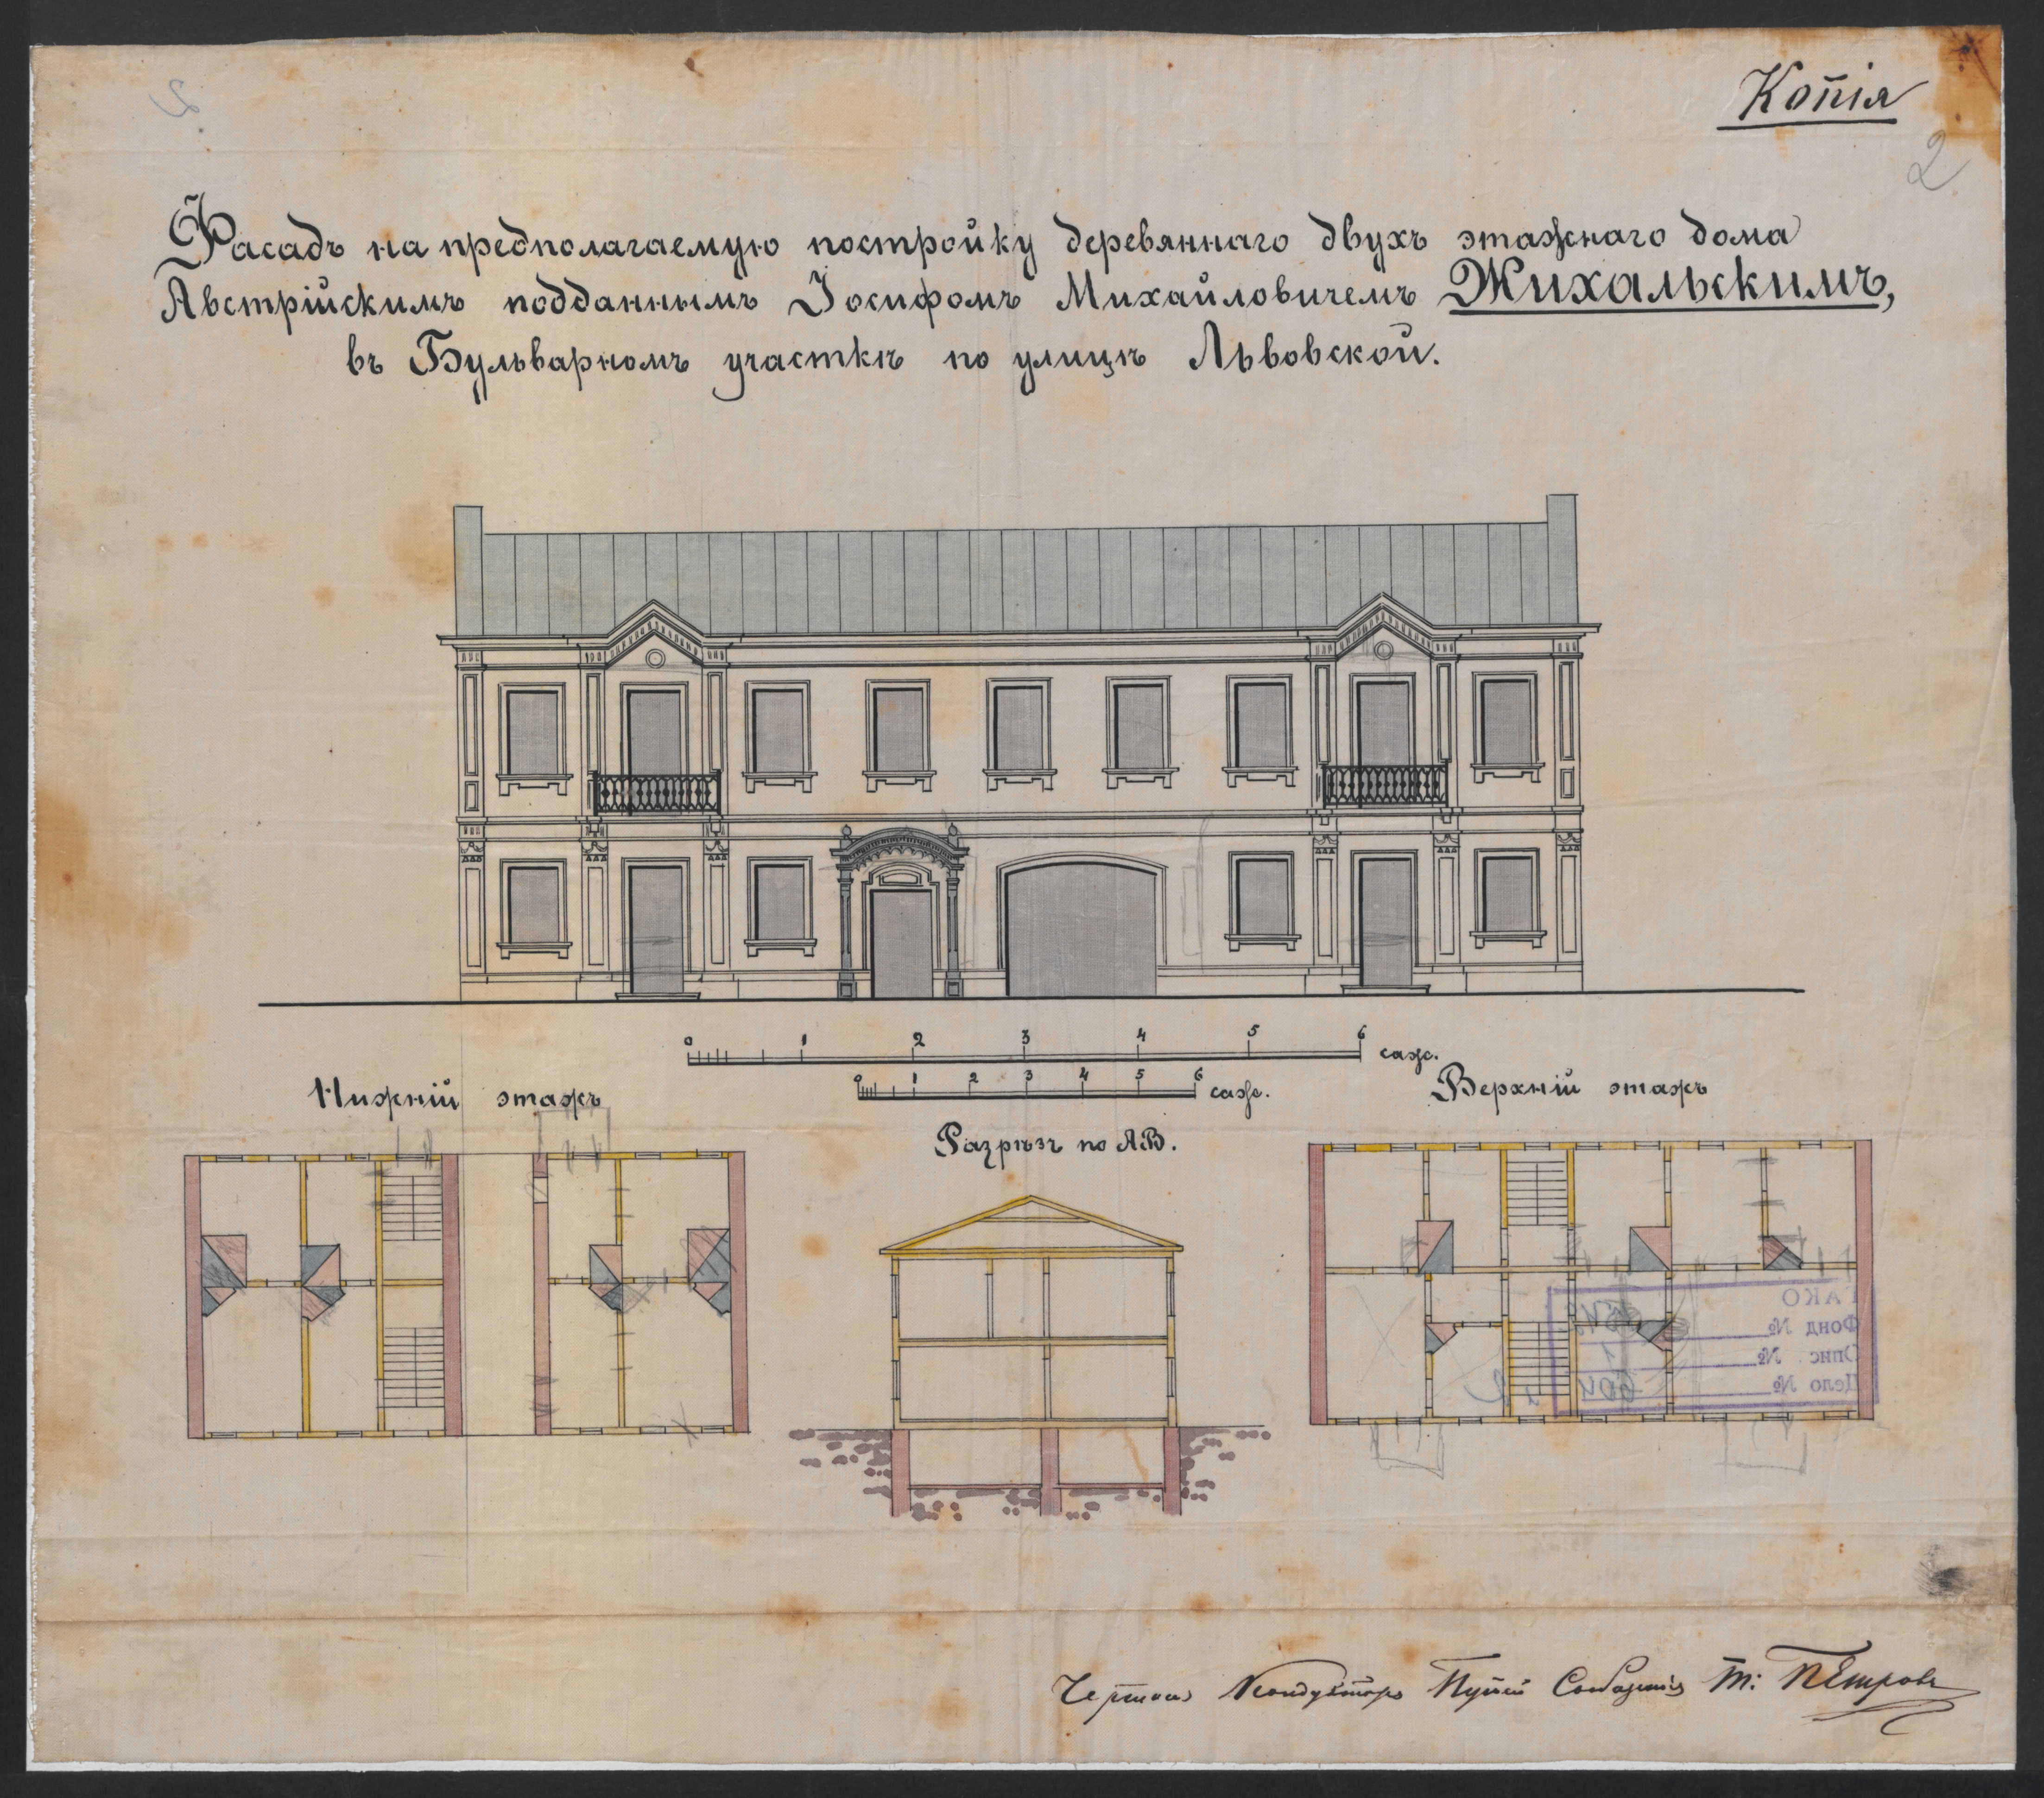 Копія
2
Фасадъ на предполагаемую постройку деревяннаго двухъ этажнаго дома
Австрійскимъ подданнымъ Іосифомъ Михайловичемъ Жихальскимъ,
въ Бульварномъ участкѣ по улицѣ Львовской.
0 1 2 3 4 5 6 саж.
0 1 2 3 4 5 6 саж.
Нижній этажъ
Верхній этажъ
Разрѣзъ по АВ.
ГАКО
Фонд №
Опис №
Дело №
Чертилъ Кондукторъ Путей Сообщенія Т: Петровъ